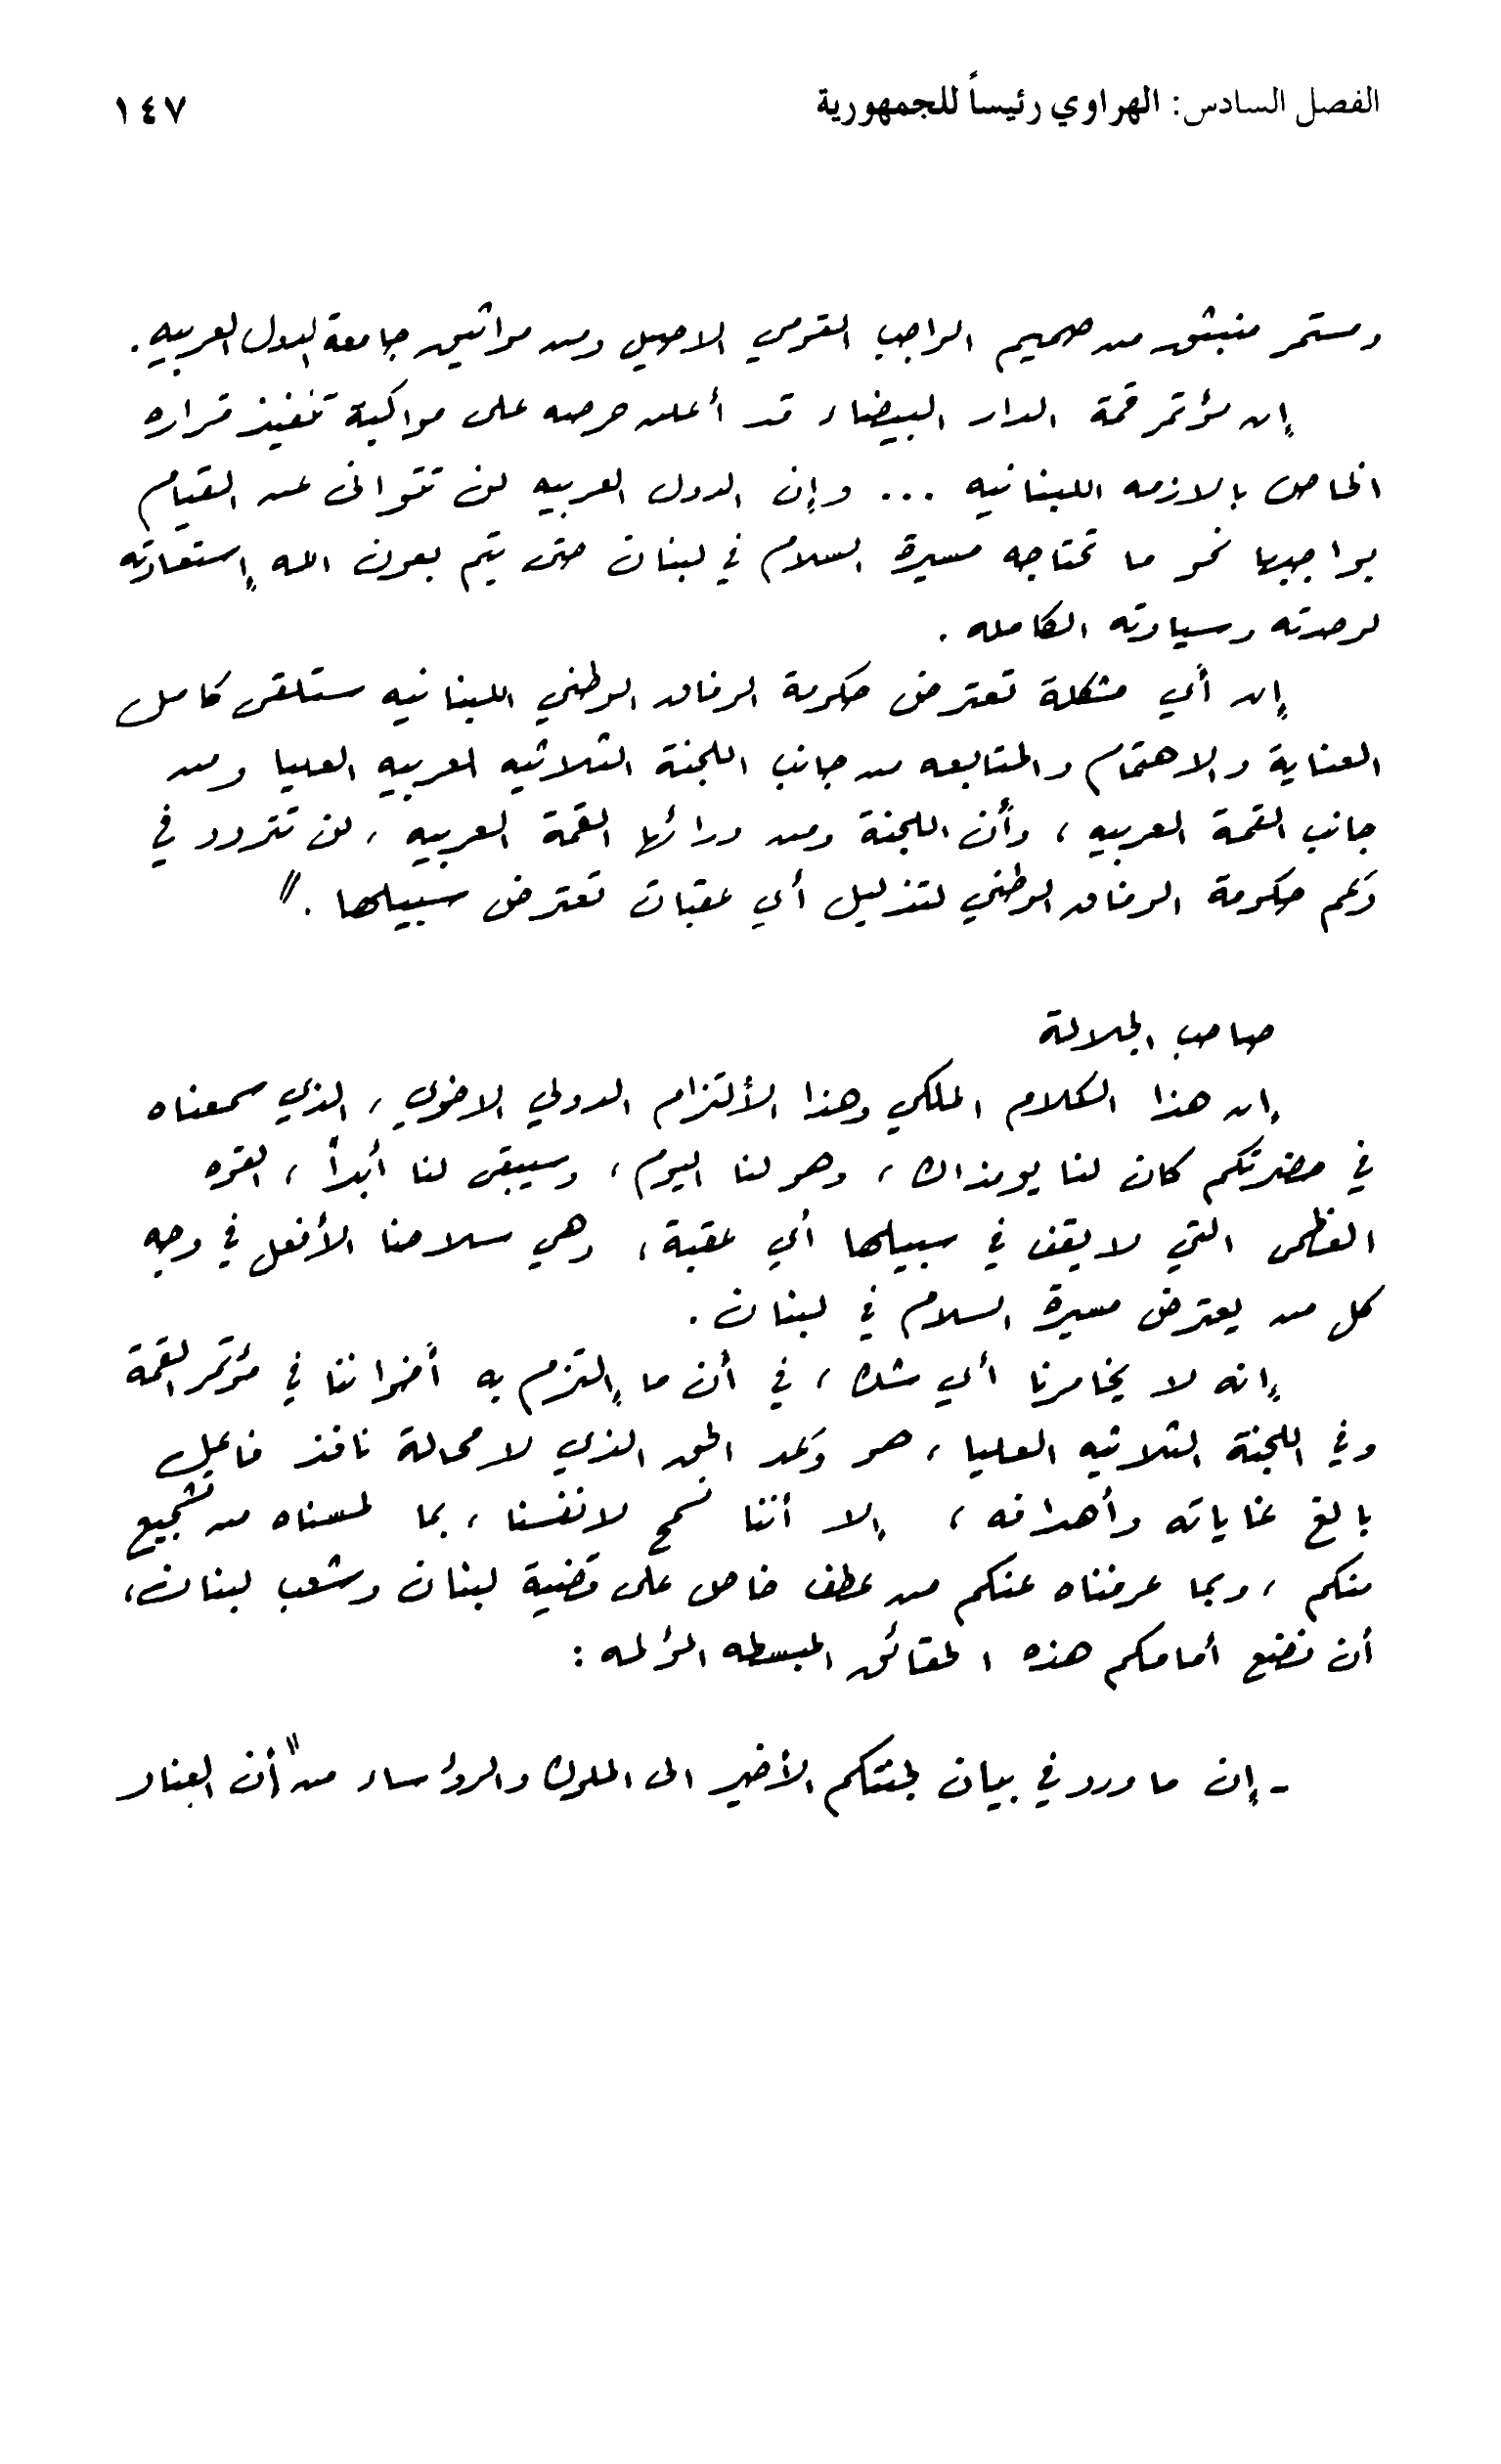 الفصل السادس: الهراوي رئيساً للجمهورية ١٤٧
ومستمر منبثق من صميم الواجب القومي الاصيل ومن مواثيق جامعة الدول العربيه.
إن مؤتمر قمة الدار البيضاء قد أعلن حرصه على مواكبة تنفيذ قراره
الخاص بالازمه اللبنانيه ... وإن الدول العربيه لن تتوانى عن القيام
بواجبها نحو ما تحتاجه مسيرة السلام في لبنان حتى يتم بعون الله إستعادته
لوحدته وسيادته الكامله.
إن أي مشكلة تعترض حكومة الوفاق الوطني اللبنانيه ستلقى كامل
العناية والاهتمام والمتابعه من جانب اللجنة الثلاثيه العربيه العليا ومن
جانب القمة العربيه، وأن اللجنة ومن ورائها القمة العربيه، لن تتردد في
دَعم حكومة الوفاق الوطني لتذليل أي عقبات تعترض سبيلها."
صاحب الجلالة
إن هذا الكلام الملكي وهذا الألتزام الدولي الاخوي، الذي سمعناه
في حضرتكم كان لنا يومذاك، وهو لنا اليوم، وسيبقى لنا أبداً، القوه
العظمى التي لا يقف في سبيلها أي عقبة، وهي سلاحنا الأفعل في وجه
كل من يعترض مسيرة السلام في لبنان.
إنه لا يخامرنا أي شك، في أن ما إلتزم به أخواننا في مؤتمر القمة
وفي اللجنة الثلاثيه العليا، هو وَعد الحق الذي لا محالة نافذ فاعل
بالغ غاياته وأهدافه، إلا أننا نسمح لانفسنا، بما لمسناه من تشجيع
منكم، وبما عرفناه عنكم من عطف خاص على قضية لبنان وشعب لبنان،
أن نضع أمامكم هذه الحقائق المبسطه المؤلمه:
- إن ما ورد في بيان لجنتكم الأخير الى الملوك والرؤساء من "أن لبنان